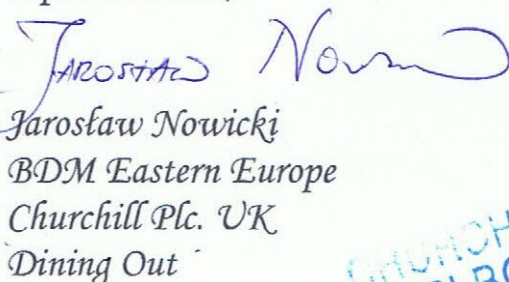 Jarosław Now
Jarosław Nowicki
BDM Eastern Europe
Churchill Plc. UK
Dining Out